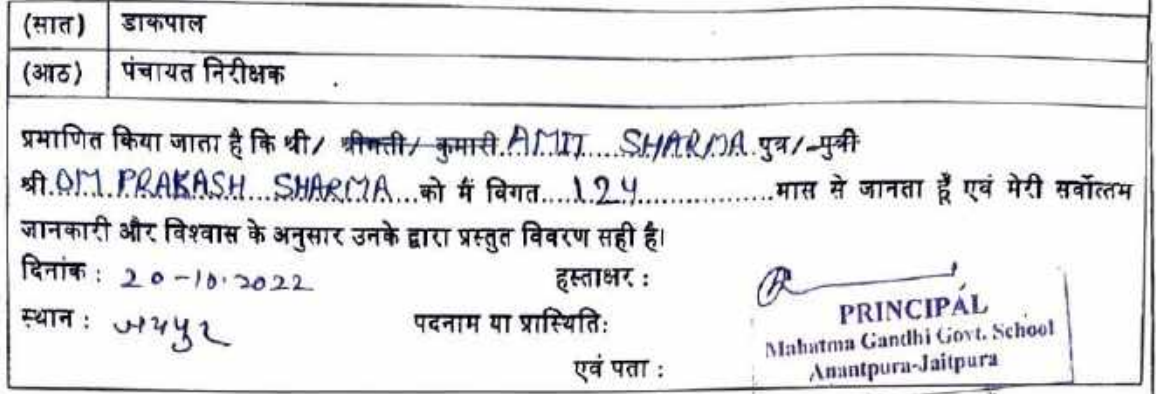 (सात) डाकपाल
(आठ) पंचायत निरीक्षक
प्रमाणित किया जाता है कि श्री/ श्रीमती/ कुमारी AMIT SHARMA पुत्र/ पुत्री
श्री.OM PRAKASH SHARMA...को मैं विगत.....124.................मास से जानता हूँ एवं मेरी सर्वोत्तम
जानकारी और विश्वास के अनुसार उनके द्वारा प्रस्तुत विवरण सही है।
दिनांक : 20-10-2022 हस्ताक्षर :
स्थान : जयपुर पदनाम या प्रास्थिति:
एवं पता :
PRINCIPAL
Mahatma Gandhi Govt. School
Anantpura-Jaitpura